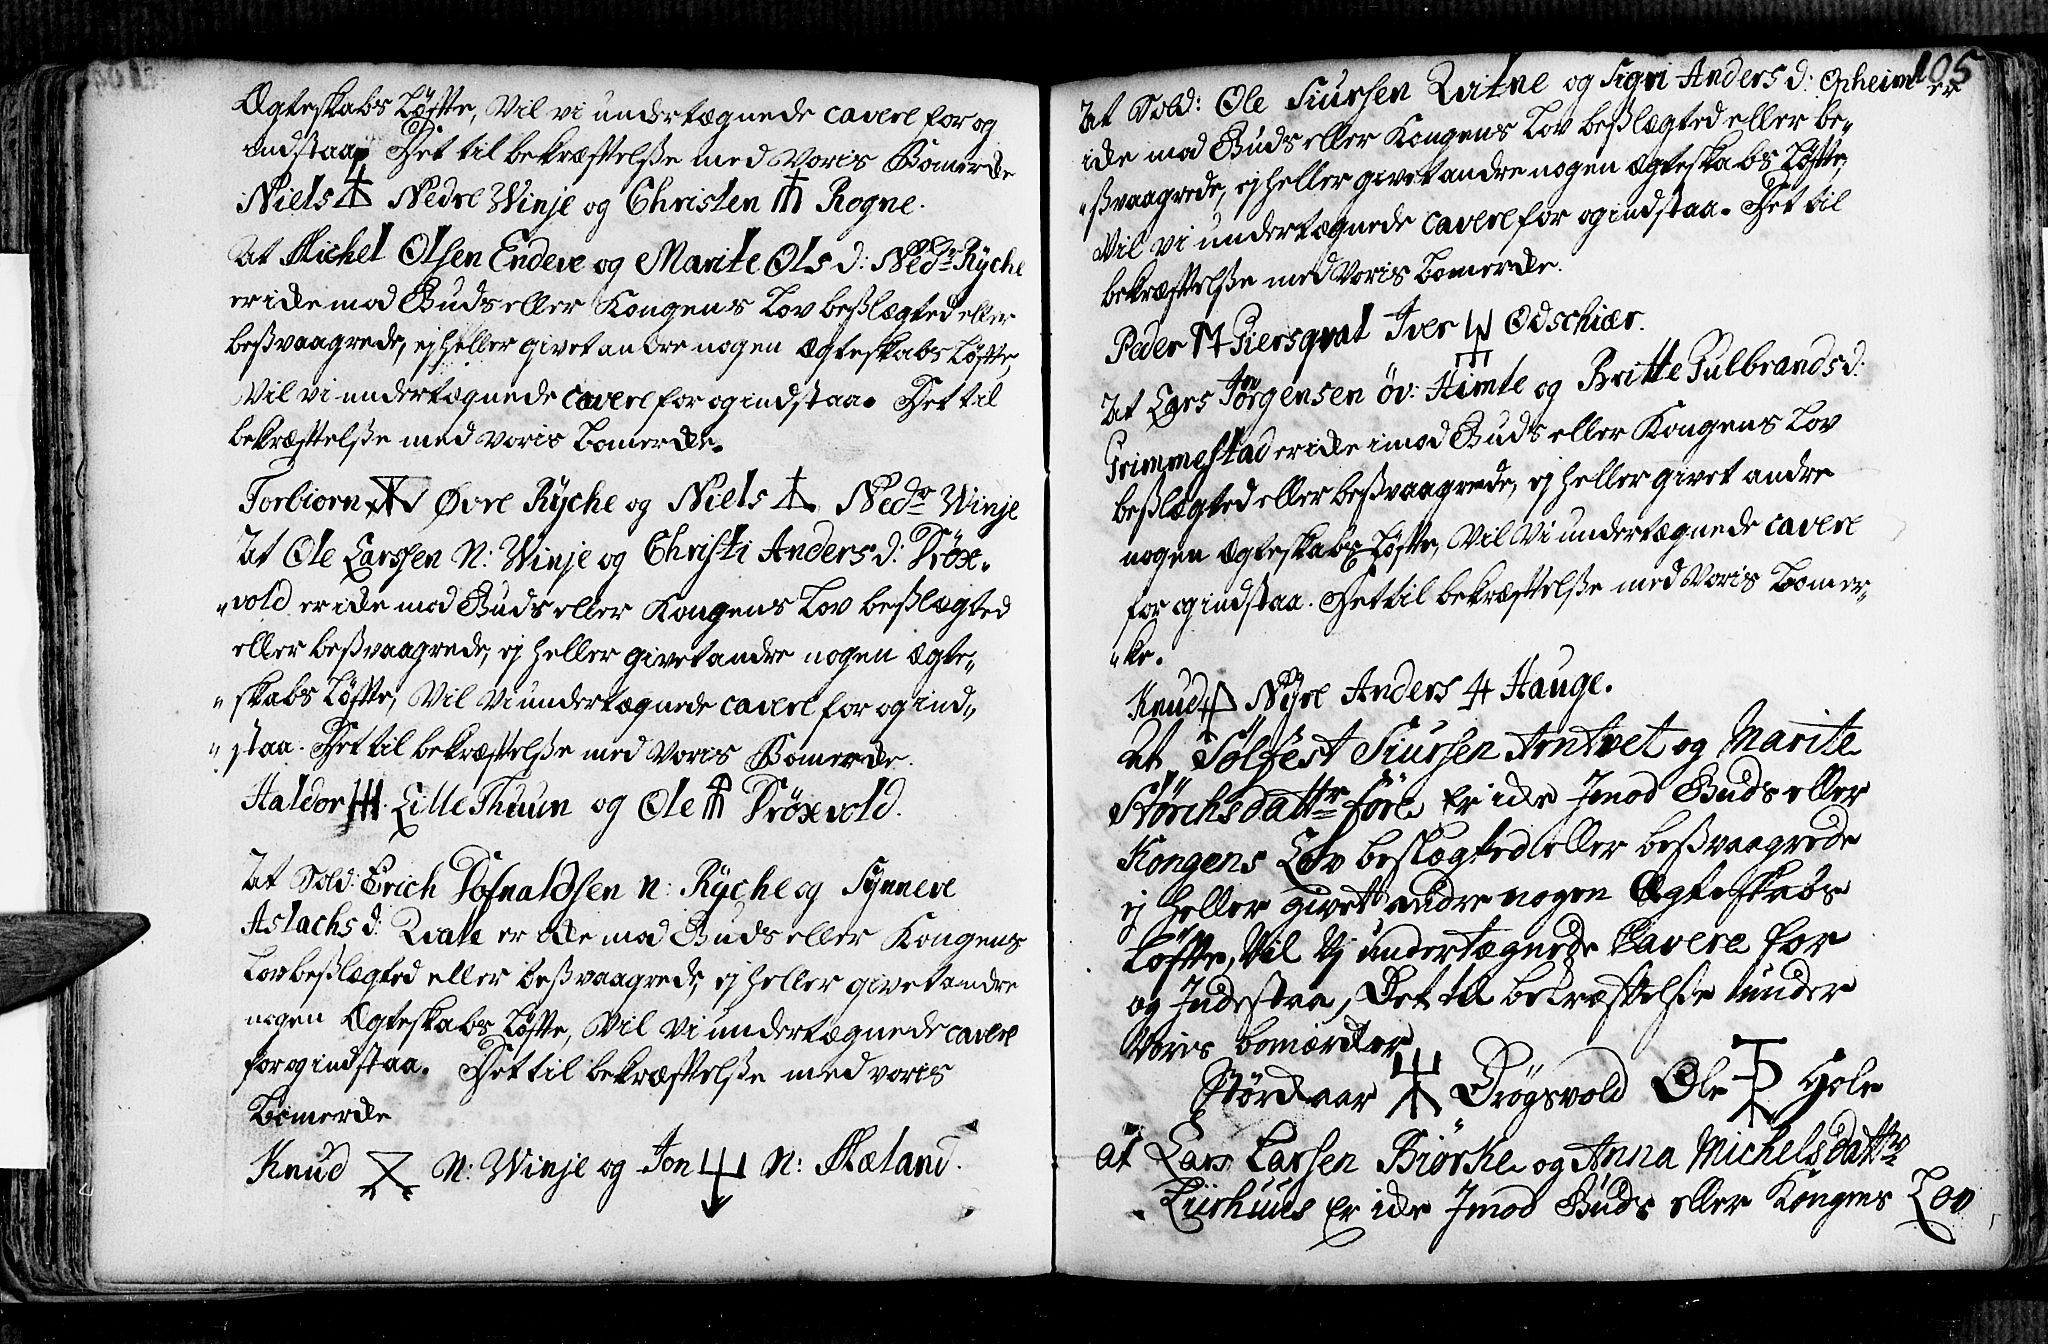 Ægteskabs Løfte, Vil vi undertægnede cavere for og
indstaa. Det til bekræftelsße med Voris Bomercke
Niels Nedre Winje og Christen Rogne.
At Michel Olsen Endeve og Marite Ols d: Nedr Rÿche
er icke mod Guds eller Kongens Lov beßlægted eller
beßvaagrede, ej heller givet andre nogen Ægteskabs Løfte,
Vil vi undertægnede cavere for og indstaa. Det til
bekræftelsße med Voris Bomercke.
Torbiorn Øvre Rÿche og Niels Nedr Winje
At Ole Larssen N: Winje og Christi Anders d: Dröx-
"vold er icke mod Guds eller Kongens Lov beßlægted
eller beßvaagrede, ej heller givet andre nogen Ægte-
"skabs Løfte, Vil Vi undertægnede cavere for og ind-
"staa. Det til bekræftelsße med Voris Bomercke.
Haldor Lille Thuun og Ole Dröxvold.
At Sold: Erich Tofnaldsen N: Rÿche og Synneve
Aslachs d: Qvale er icke mod Guds eller Kongens
Lov beßlægted eller beßvaagrede, ej heller givet andre
nogen Ægteskabs Løfte, Vil Vi undertægnede cavere
for og indstaa. Det til bekræftelsße med voris
Bomercke
Knud N: Winje og Jon N: Mæland.
105
At Sold: Ole Siursen Qvitne og Sigri Anders d: Opheim er
icke mod Guds eller Kongens Lov beßlægted eller be-
"ßvaagrede, ej heller givet andre nogen Ægteskabs Løfte,
Vil vi undertægnede cavere for og indstaa. Det til
bekræftelsße med Voris Bomercke.
Peder Giersqval Iver Odschiær.
At Lars Jörgensen öv: Himle og Britte Gulbrands d:
Grimmestad er icke imod Guds eller Kongens Lov
beßlægted eller beßvaagrede, ej heller givet andre
nogen Ægteskabs Løfte, Vil Vi undertægnede cavere
for og indstaa. Det til bekræftelsße med Voris Bomer-
"ke.
Knud Nÿre Anders Hauge.
At Sølfest Siursen Arntvet og Marite
Störchsdattr Före Er icke Imod Guds eller
Kongens Lov beslægted eller beßvaagrede
ej heller givet andre nogen Ægteskabs
Løfte, Vil Vj undertægnede Cavere for
og Indestaa, Det til bekræftelsße under
Voris bomærcker
Störckaar Drögsvold Ole Hole
at Lars Larsen Biørke og Anna Michelsdattr
Liirhuus Er icke Imod Guds eller Kongens Lov